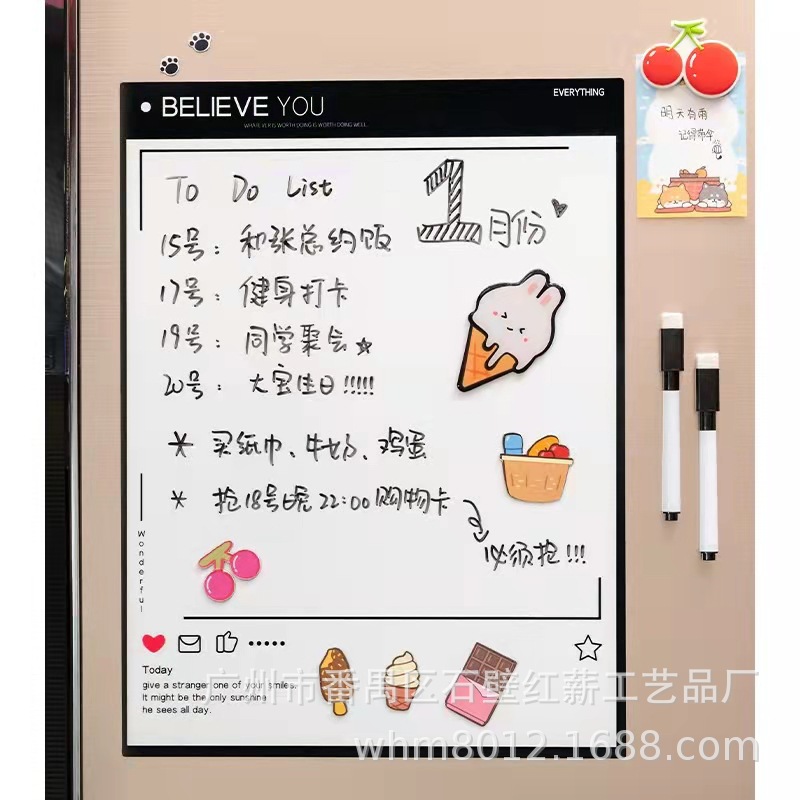 BELIEVE YOU
EVERYTHING
WHATEVER IS WORTH DOING IS WORTH DOING WELL.
明天有雨
记得带伞
To Do List
1月份
15号：和张总约饭
17号：健身打卡
19号：同学聚会
20号：大宝生日!!!!!
* 买纸巾、牛奶、鸡蛋
* 抢18号晚22:00购物卡
必须抢!!!
Wonderful
Today
give a stranger one of your smiles.
It might be the only sunshine
he sees all day.
广州市番禺区石壁红薪工艺品厂
whm8012.1688.com